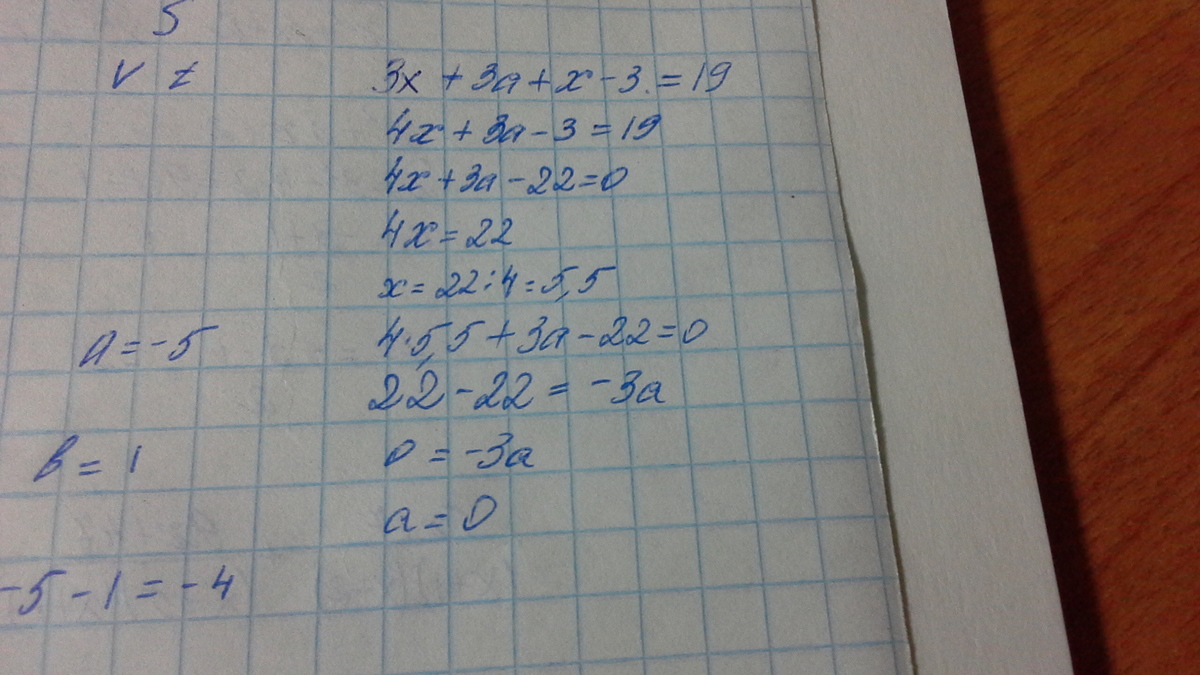 5
v z
3x + 3a + x - 3 = 19
4x + 3a - 3 = 19
4x + 3a - 22 = 0
4x = 22
x = 22 : 4 = 5,5
4 · 5,5 + 3a - 22 = 0
22 - 22 = -3a
0 = -3a
a = 0
a = -5
b = 1
-5 - 1 = -4